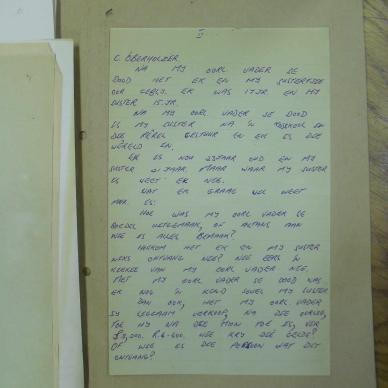 II
C. OBERHOLZER
NA MY OORL VADER SE
DOOD HET EK EN MY SUSTERTJIE
OOR GEBLY. EK WAS 17 JR. EN MY
SUSTER 15. JR.
NA MY OORL VADER SE DOOD
IS MY SUSTER NA 'N KOSSKOOL IN
DIE PÊREL GESTUUR EN EK IS DIE
WÊRELD IN.
EK IS NOU 23 JAAR OUD EN MY
SUSTER 21 JAAR MAAR WAAR MY SUSTER
IS WEET EK NIE.
WAT EK GRAAG WIL WEET
MNR. IS:
HOE WAS MY OORL VADER SE
BOEDEL UITGEMAAK, OF ALTANS AAN
WIE IS ALLES BEMAAK?
HOEKOM HET EK EN MY SUSTER
NIKS ONTVANG NIE? NIE EERS 'N
KIEKIE VAN MY OORL VADER NIE.
MET MY OORL VADER SE DOOD WAS
EK NOG 'N KIND SOWEL MY SUSTER
DAN OOK, HET MY OORL VADER
SY LEGGAAM VERKOOP, NA DIE OORLOG,
TOE HY NA DIE MYN TOE IS, VIR
WIE KRY DIE GELD?
OF WIE IS DIE PERSOON WAT DIT
ONTVANG?